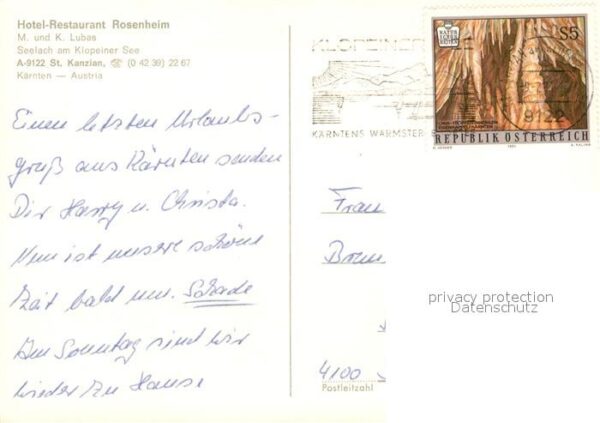 Hotel-Restaurant Rosenheim
M. und K. Lubas
Seelach am Klopeiner See
A-9122 St. Kanzian, ☏ (0 42 39) 22 67
Kärnten — Austria
Einen letzten Urlaubs-
gruß aus Kärnten senden
Dir Harry u. Christa.
Nun ist unsere schöne
Zeit bald um. Schade
Am Sonntag sind wir
wieder zu Hause
KLOPEINER SEE
KÄRNTENS WÄRMSTER
NATUR
S5
9122
REPUBLIK ÖSTERREICH
Frau
Brun
privacy protection
Datenschutz
4100
Postleitzahl